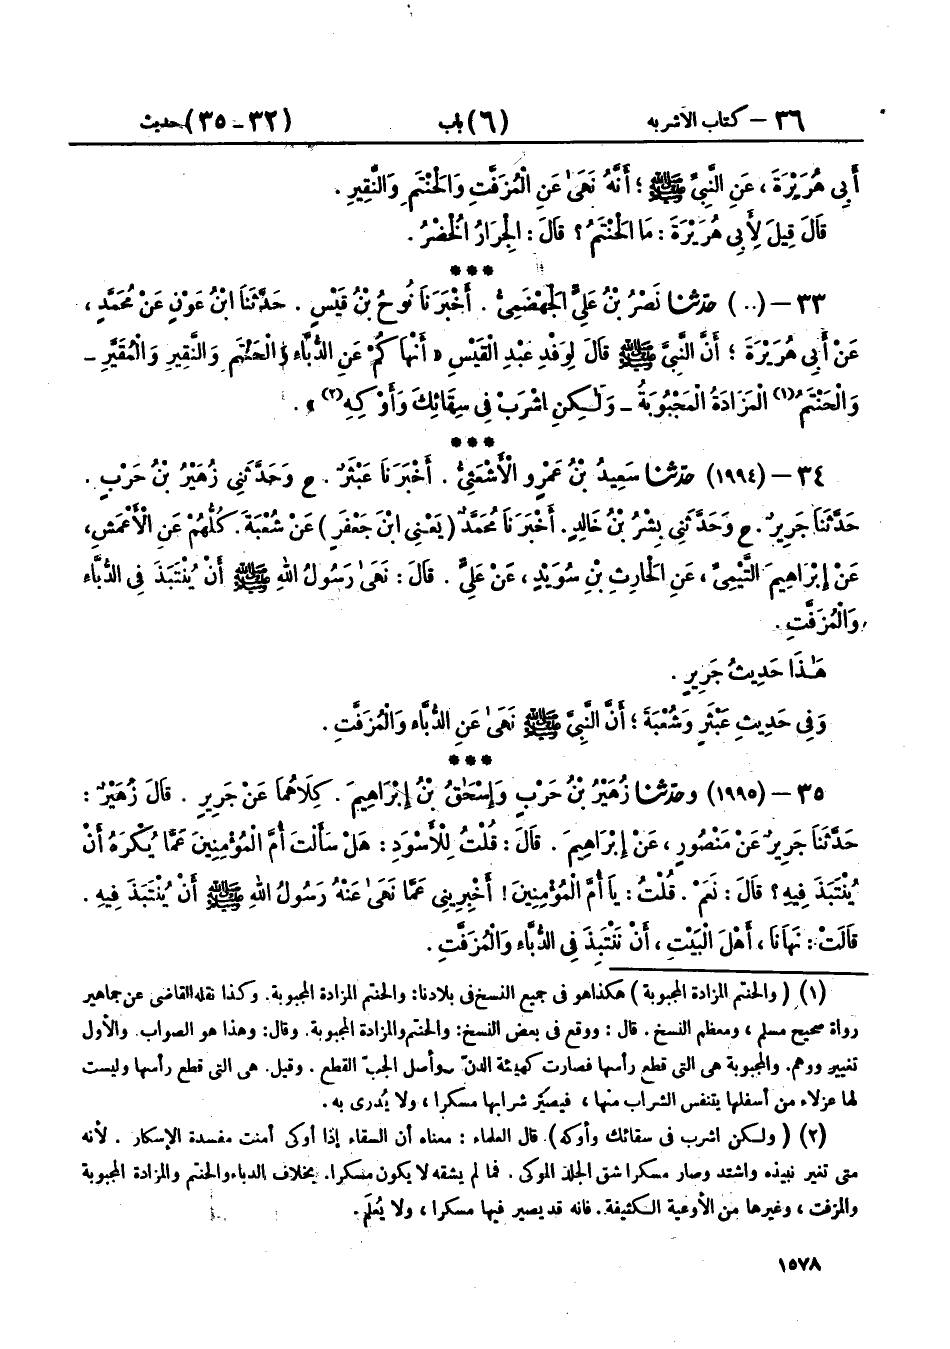 ٣٦ – كتاب الأشربه (٦) باب (٣٢ – ٣٥) حديث
أَبِى هُرَيْرَةَ ، عَنِ النَّبِىِّ ﷺ ؛ أَنَّهُ نَهَىٰ عَنِ الْمُزَفَّتِ وَالْحَنْتَمِ وَالنَّقِيرِ .
قَالَ قِيلَ لِأَبِى هُرَيْرَةَ : مَا الْحَنْتَمُ ؟ قَالَ : الْجِرَارُ الْخُضْرُ .
***
٣٣ – (..) حدّثنا نَصْرُ بْنُ عَلِىٍّ الْجَهْضَمِىُّ . أَخْبَرَنَا نُوحُ بْنُ قَيْسٍ . حَدَّثَنَا ابْنُ عَوْنٍ عَنْ مُحَمَّدٍ ،
عَنْ أَبِى هُرَيْرَةَ ؛ أَنَّ النَّبِىَّ ﷺ قَالَ لِوَفْدِ عَبْدِ الْقَيْسِ « أَنْهَاكُمْ عَنِ الدُّبَّاءِ وَالْحَنْتَمِ وَالنَّقِيرِ وَالْمُقَيَّرِ –
وَالْحَنْتَمُ(١) الْمَزَادَةُ الْمَجْبُوبَةُ – وَلَـٰكِنِ اشْرَبْ فِى سِقَائِكَ وَأَوْكِهِ(٢) » .
***
٣٤ – (١٩٩٤) حدّثنا سَعِيدُ بْنُ عَمْرٍو الْأَشْعَثِىُّ . أَخْبَرَنَا عَبْثَرٌ . ح وَحَدَّثَنِى زُهَيْرُ بْنُ حَرْبٍ .
حَدَّثَنَا جَرِيرٌ . ح وَحَدَّثَنِى بِشْرُ بْنُ خَالِدٍ . أَخْبَرَنَا مُحَمَّدٌ (يَعْنِى ابْنَ جَعْفَرٍ) عَنْ شُعْبَةَ . كُلُّهُمْ عَنِ الْأَعْمَشِ ،
عَنْ إِبْرَاهِيمَ التَّيْمِىِّ ، عَنِ الْحَارِثِ بْنِ سُوَيْدٍ ، عَنْ عَلِىٍّ . قَالَ : نَهَىٰ رَسُولُ اللهِ ﷺ أَنْ يُنْتَبَذَ فِى الدُّبَّاءِ
وَالْمُزَفَّتِ .
هَـٰذَا حَدِيثُ جَرِيرٍ .
وَفِى حَدِيثِ عَبْثَرٍ وَشُعْبَةَ ؛ أَنَّ النَّبِىَّ ﷺ نَهَىٰ عَنِ الدُّبَّاءِ وَالْمُزَفَّتِ .
***
٣٥ – (١٩٩٥) وحدّثنا زُهَيْرُ بْنُ حَرْبٍ وَإِسْحَٰقُ بْنُ إِبْرَاهِيمَ . كِلَاهُمَا عَنْ جَرِيرٍ . قَالَ زُهَيْرٌ :
حَدَّثَنَا جَرِيرٌ عَنْ مَنْصُورٍ ، عَنْ إِبْرَاهِيمَ . قَالَ : قُلْتُ لِلْأَسْوَدِ : هَلْ سَأَلْتَ أُمَّ الْمُؤْمِنِينَ عَمَّا يُكْرَهُ أَنْ
يُنْتَبَذَ فِيهِ ؟ قَالَ : نَعَمْ . قُلْتُ : يَا أُمَّ الْمُؤْمِنِينَ ! أَخْبِرِينِى عَمَّا نَهَىٰ عَنْهُ رَسُولُ اللهِ ﷺ أَنْ يُنْتَبَذَ فِيهِ .
قَالَتْ : نَهَانَا ، أَهْلَ الْبَيْتِ ، أَنْ نَنْتَبِذَ فِى الدُّبَّاءِ وَالْمُزَفَّتِ .
(١) ( والحنتم المزادة المجبوبة ) هكذا هو فى جميع النسخ فى بلادنا: والحنتم المزادة المجبوبة. وكذا نقله القاضى عن جماهير
رواة صحيح مسلم ، ومعظم النسخ . قال : ووقع فى بعض النسخ: والحنتم والمزادة المجبوبة. وقال: وهذا هو الصواب. والأول
تغيير ووهم. والمجبوبة هى التى قطع رأسها فصارت كهيئة الدنّ . وأصل الجبّ القطع . وقيل. هى التى قطع رأسها وليست
لها عزلاء من أسفلها يتنفس الشراب منها ، فيصيّر شرابها مسكرا ، ولا يُدرى به .
(٢) ( ولـكن اشرب فى سقائك وأوكه ). قال العلماء : معناه أن السقاء إذا أوكى أمنت مفسدة الإسكار . لأنه
متى تغير نبيذه واشتد وصار مسكرا شق الجلد الموكى . فما لم يشقه لا يكون مسكرا. بخلاف الدباء والحنتم والمزادة المجبوبة
والمزفت ، وغيرها من الأوعية الـكثيفة. فانه قد يصير فيها مسكرا ، ولا يُعلَم .
١٥٧٨